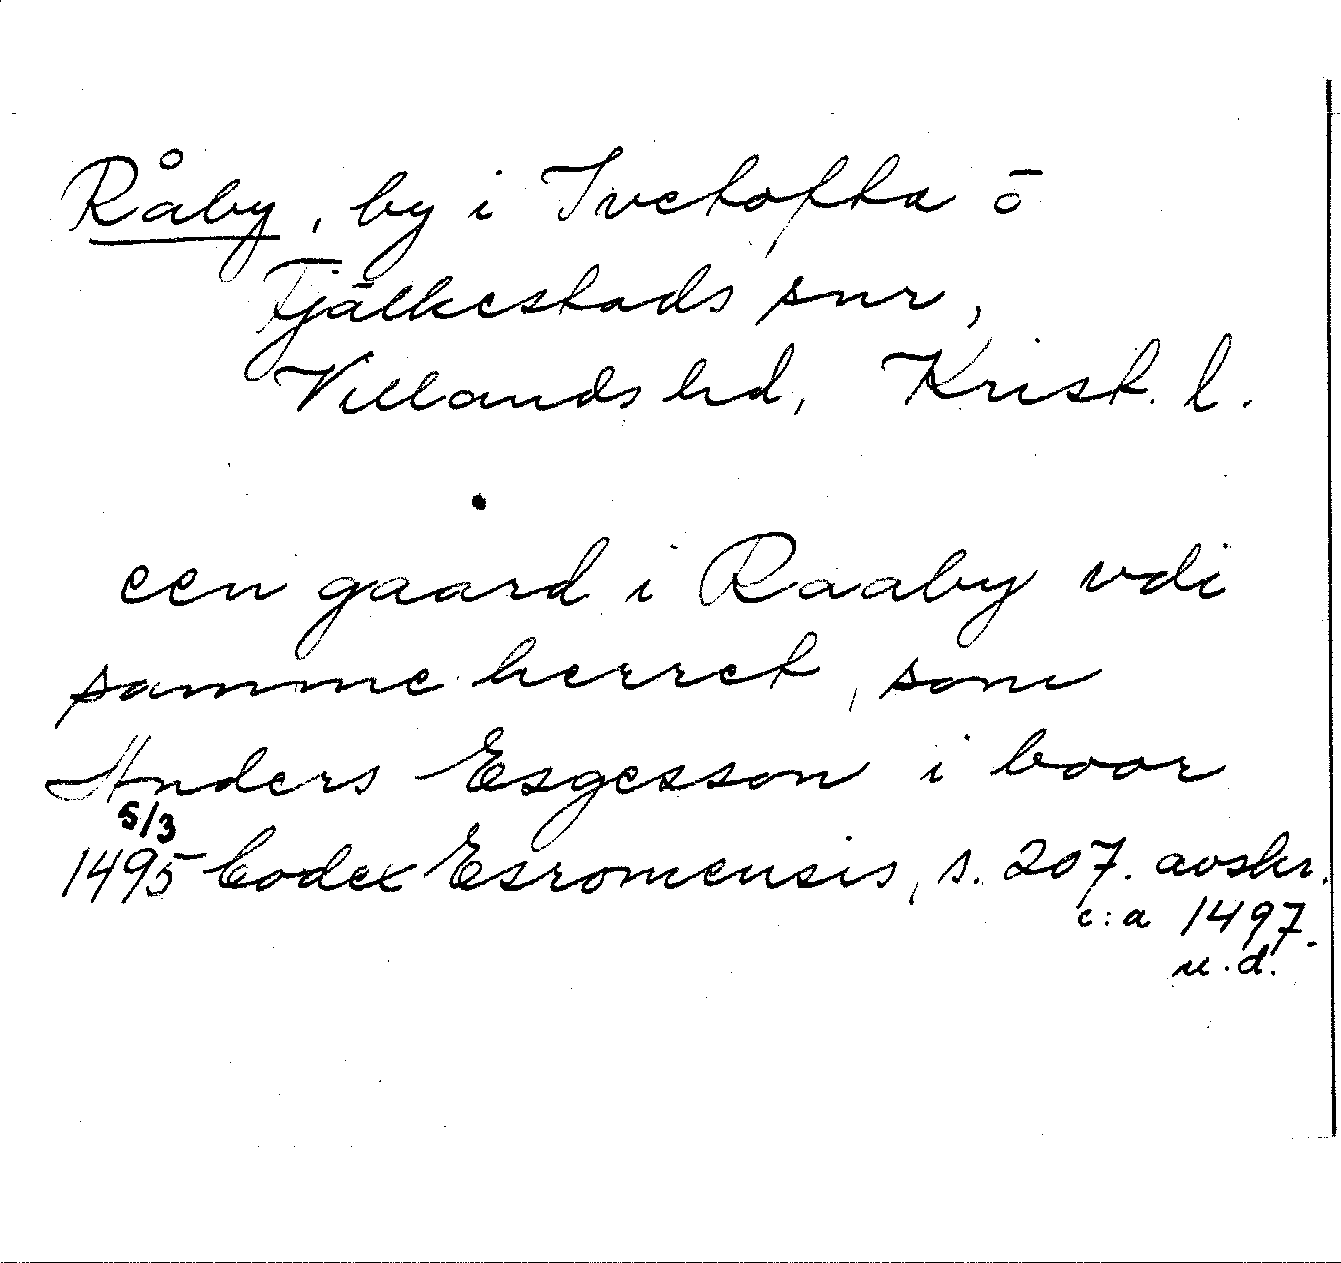 Råby, by i Ivetofta ō
Fjälkestads snr,
Villands hd, Krist. l.
een gaard i Raaby vdi
samme herret, som
Anders Esgesson i boor
5/3
1495 Codex Esromensis, s. 207. avskr.
c:a 1497.
u.d.